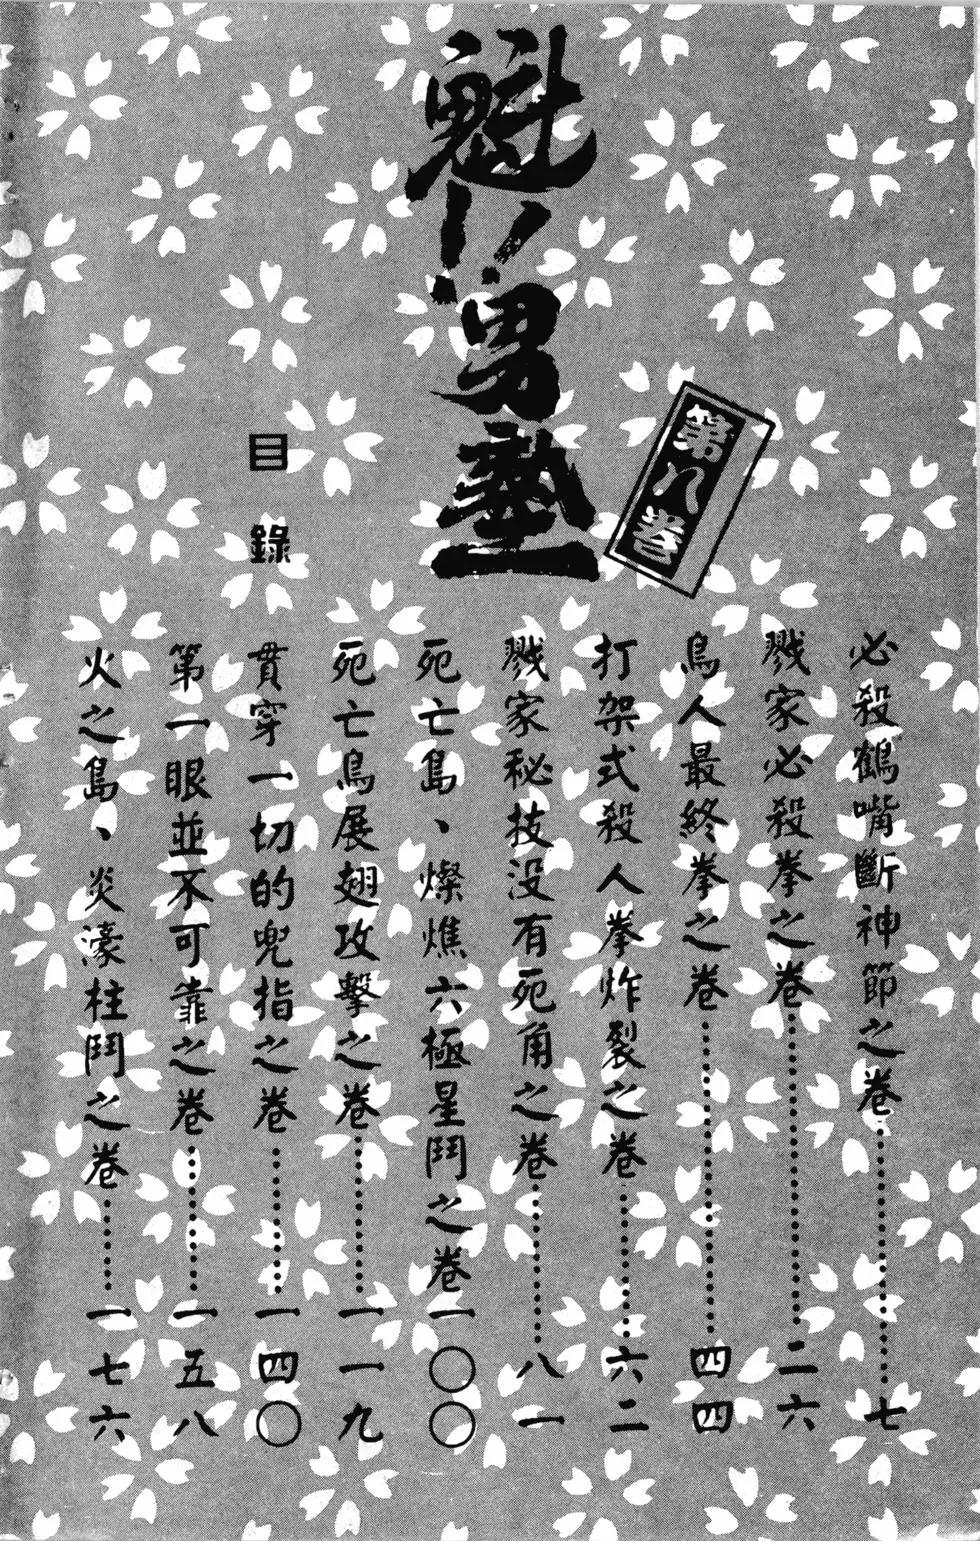 魁!!男塾
第八卷
目錄
必殺鶴嘴斷神節之卷⋯⋯七
戮家必殺拳之卷⋯⋯二六
鳥人最終拳之卷⋯⋯四四
打架式殺人拳炸裂之卷⋯⋯六二
戮家秘技没有死角之卷⋯⋯八一
死亡島、燦燋六極星鬥之卷一〇〇
死亡鳥展翅攻擊之卷⋯⋯一一九
貫穿一切的兜指之卷⋯⋯一四〇
第一眼並不可靠之卷⋯⋯一五八
火之島、炎濠柱鬥之卷⋯⋯一七六